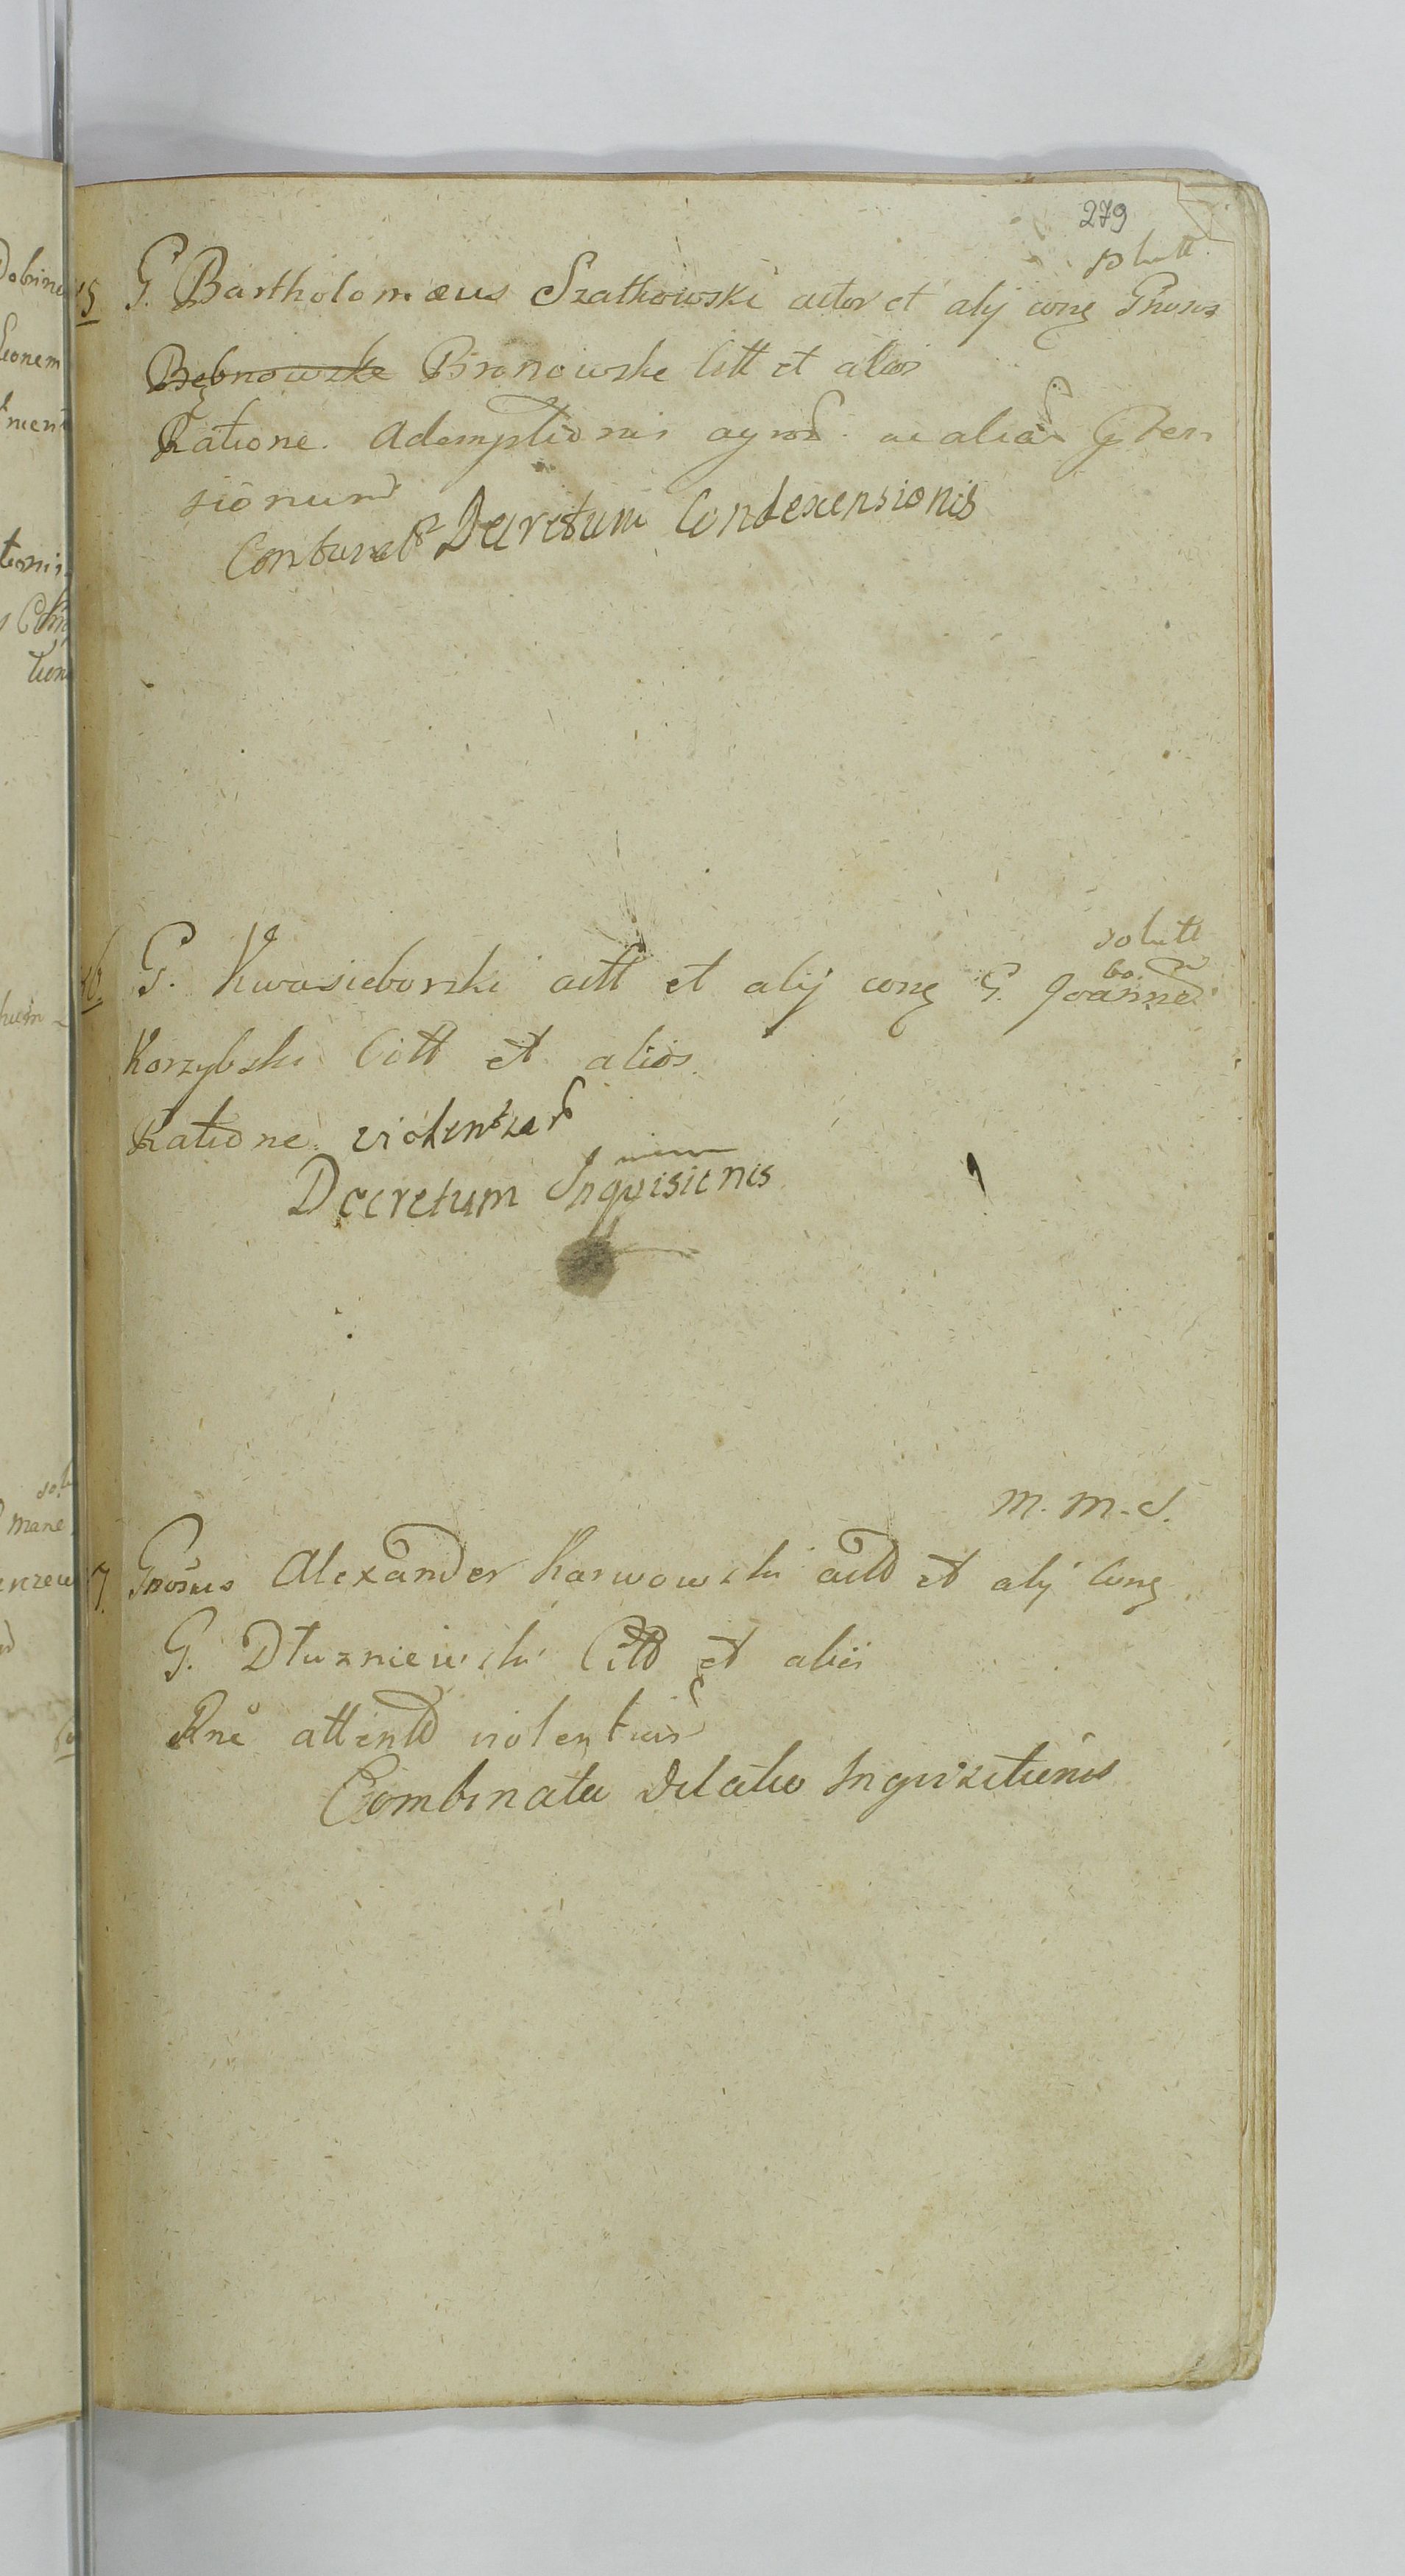 279
solutt.
15 G. Bartholomæus Szatkowski actor et alij cong Gnosos
Bębnowske Bronowske Citt et alios
Ratione. Ademptionis agrod. ac aliad Prten
sionund
Contumat Decretum Condexensionis
solutt
16 G. Kwasieborski actt et alij cong G. Joanned
Korzybski Citt et alios.
Ratione. violentzad
Decretum Inqvisicnis
m. m. s.
7. Gnosus Alexander Karwowski actd et alij Cong
G. Dłuzniewski Citd et alii
Rne attentd violentiis
Combinata Dilatio Inquizitionis